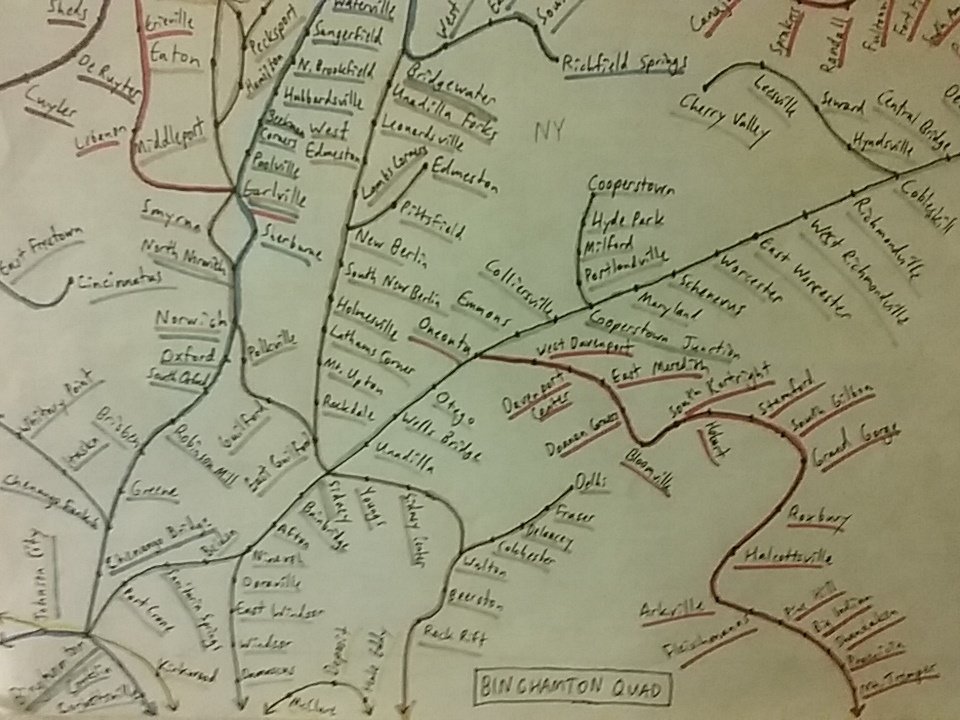 Sheds
Erieville
Eaton
De Ruyter
Cuyler
Lebanon
Middleport
Pecksport
Hamilton
Waterville
Sangerfield
N. Brookfield
Hubbardsville
Corners
Poolville
Earlville
West
Edmeston
Bridgewater
Unadilla Forks
Leonardsville
Lambs Corners
Edmeston
Pittsfield
West
Richfield Springs
NY
Cherry Valley
Leesville
Seward
Hyndsville
Central Bridge
Cobleskill
Randall
Richmondville
West Richmondville
East Worcester
Worcester
Schenevus
Maryland
Cooperstown Junction
Cooperstown
Hyde Park
Milford
Portlandville
Colliersville
Emmons
Oneonta
Smyrna
Sherburne
North Norwich
East Freetown
Cincinnatus
Norwich
Oxford
South Oxford
Polkville
Guilford
East Guilford
New Berlin
South New Berlin
Holmesville
Lathams Corner
Mt. Upton
Rockdale
Otego
Wells Bridge
Unadilla
West Davenport
Davenport
Center
East Meredith
South Kortright
Bloomville
Hobart
Stamford
South Gilboa
Grand Gorge
Roxbury
Halcottsville
Arkville
Fleischmanns
Pine Hill
Big Indian
Shandaken
Phoenicia
Mt. Tremper
Whitney Point
Itaska
Brisben
Robinson Mill
Greene
Chenango Forks
Chenango Bridge
Belden
Sidney
Youngs
Sidney Center
Bainbridge
Afton
Nineveh
Doraville
East Windsor
Windsor
Damascus
Sanitaria Springs
Port Crane
Johnson City
Binghamton
Conklin
Corbettsville
Kirkwood
Delhi
Fraser
Delancey
Colchester
Walton
Beerston
Rock Rift
McClure
Deposit
Hale Eddy
BINGHAMTON QUAD